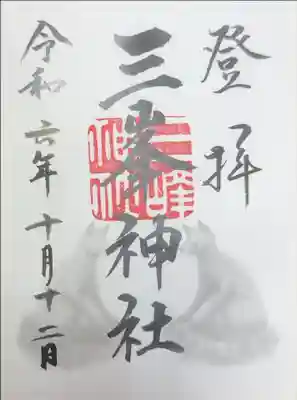 登拝
三峯神社
令和六年十月十二日